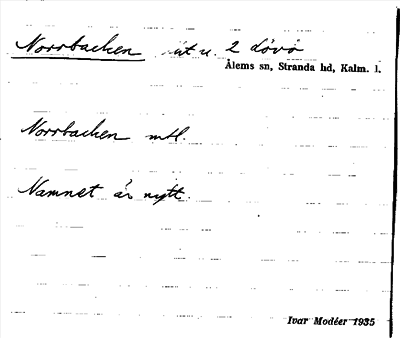 Norrbacken åt u. 2 Lövö
Ålems sn, Stranda hd, Kalm. l.
Norrbacken mtl.
Namnet är nytt.
Ivar Modéer 1935